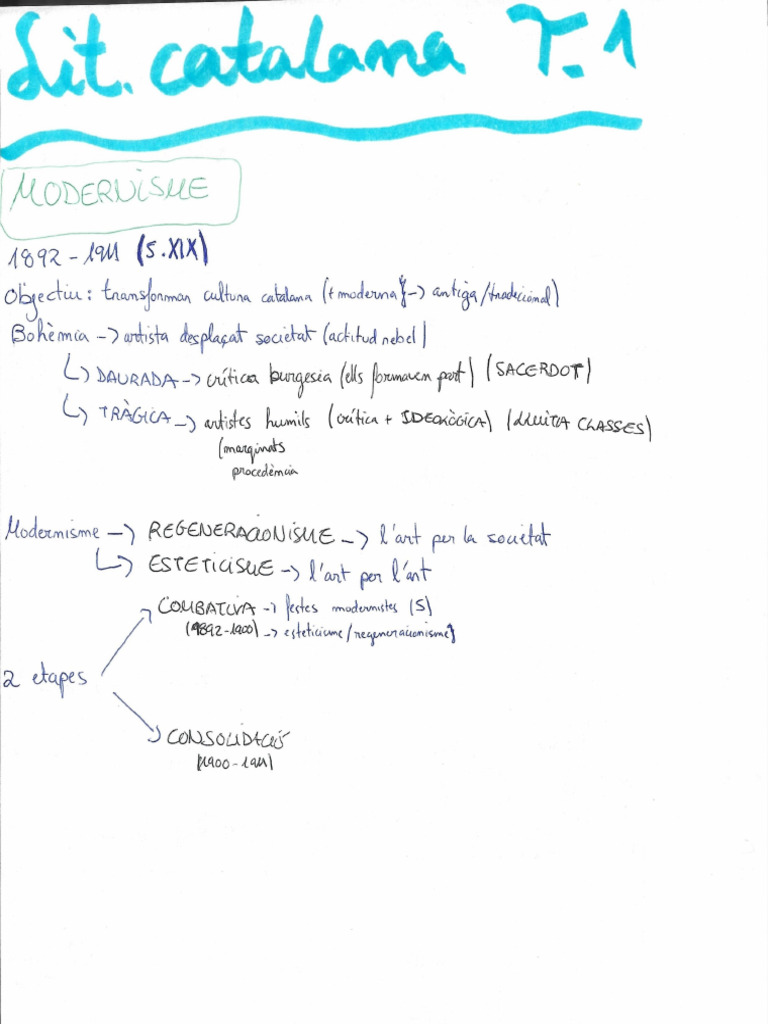 Lit. catalana T.1
MODERNISME
1892 - 1911 (S.XIX)
Objectiu: transforman cultura catalana (+ moderna} -> antiga/tradicional)
Bohèmia -> artista desplaçat societat (actitud rebel)
↳ DAURADA -> crítica burgesia (ells formaven part) (SACERDOT)
↳ TRÀGICA -> artistes humils (crítica + IDEOLÒGICA) (LLUITA CLASSES)
(marginats
procedència
Modernisme -> REGENERACIONISME -> l'art per la societat
↳ ESTETICISME -> l'art per l'art
COMBATIVA -> festes modernistes (5)
(1892-1900) -> esteticisme/regeneracionisme}
2 etapes
CONSOLIDACIÓ
(1900-1911)